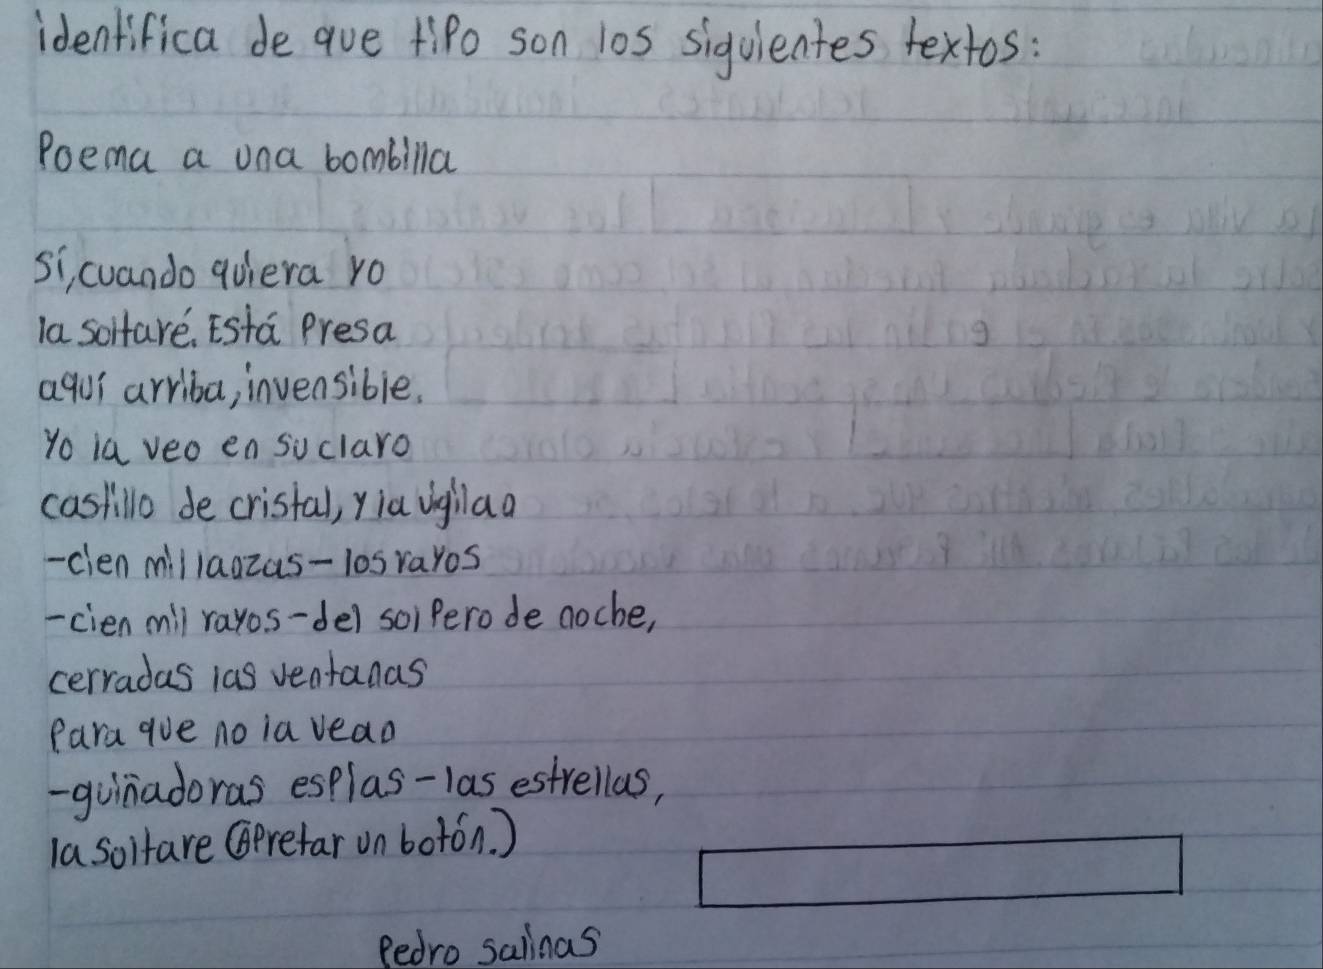 identifica de que tipo son los siguientes textos:
Poema a una bombilla
Sí, cuando quiera yo
la soltaré. Está Presa
aquí arriba, invensible.
Yo la veo en su claro
castillo de cristal, y la vigilan
-cien mil lanzas-los rayos
-cien mil rayos-del sol Pero de noche,
cerradas las ventanas
Para que no la vean
-guiñadoras espías-las estrellas,
la soltare (Apretar un botón.)
Pedro Salinas